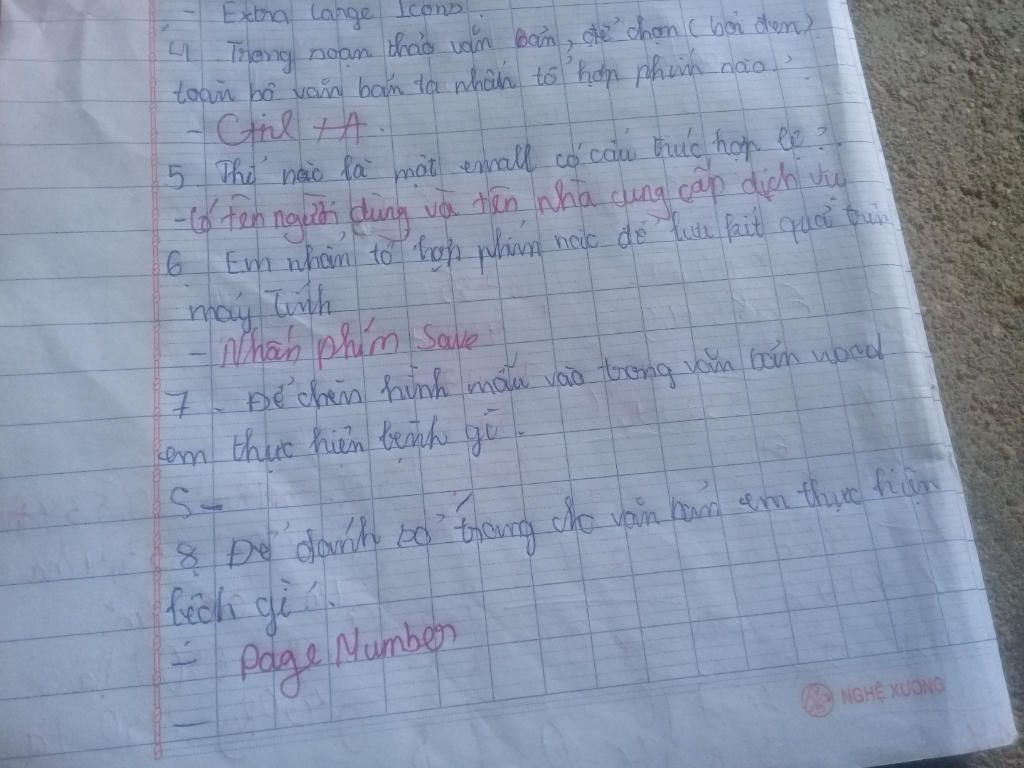 - Extra Lange Icons.
4 Trong soạn thảo văn bản, để chọn (bôi đen)
toàn bộ văn bản ta nhấn tổ hợp phím nào?
- Ctrl + A.
5 Thế nào là một email có cấu thúc hợp lệ?
- Có tên người dùng và tên nhà cung cấp dịch vụ
6 Em nhấn tổ hợp phím nào để lưu kết quả trên
máy tính
- Nhấn phím Save
7. Để chèn hình mẫu vào trong văn bản word
em thực hiện lệnh gì.
S -
8 Để đánh số trang cho văn bản em thực hiện
lệch gì.
- Page Number
-
NGHỆ XƯƠNG